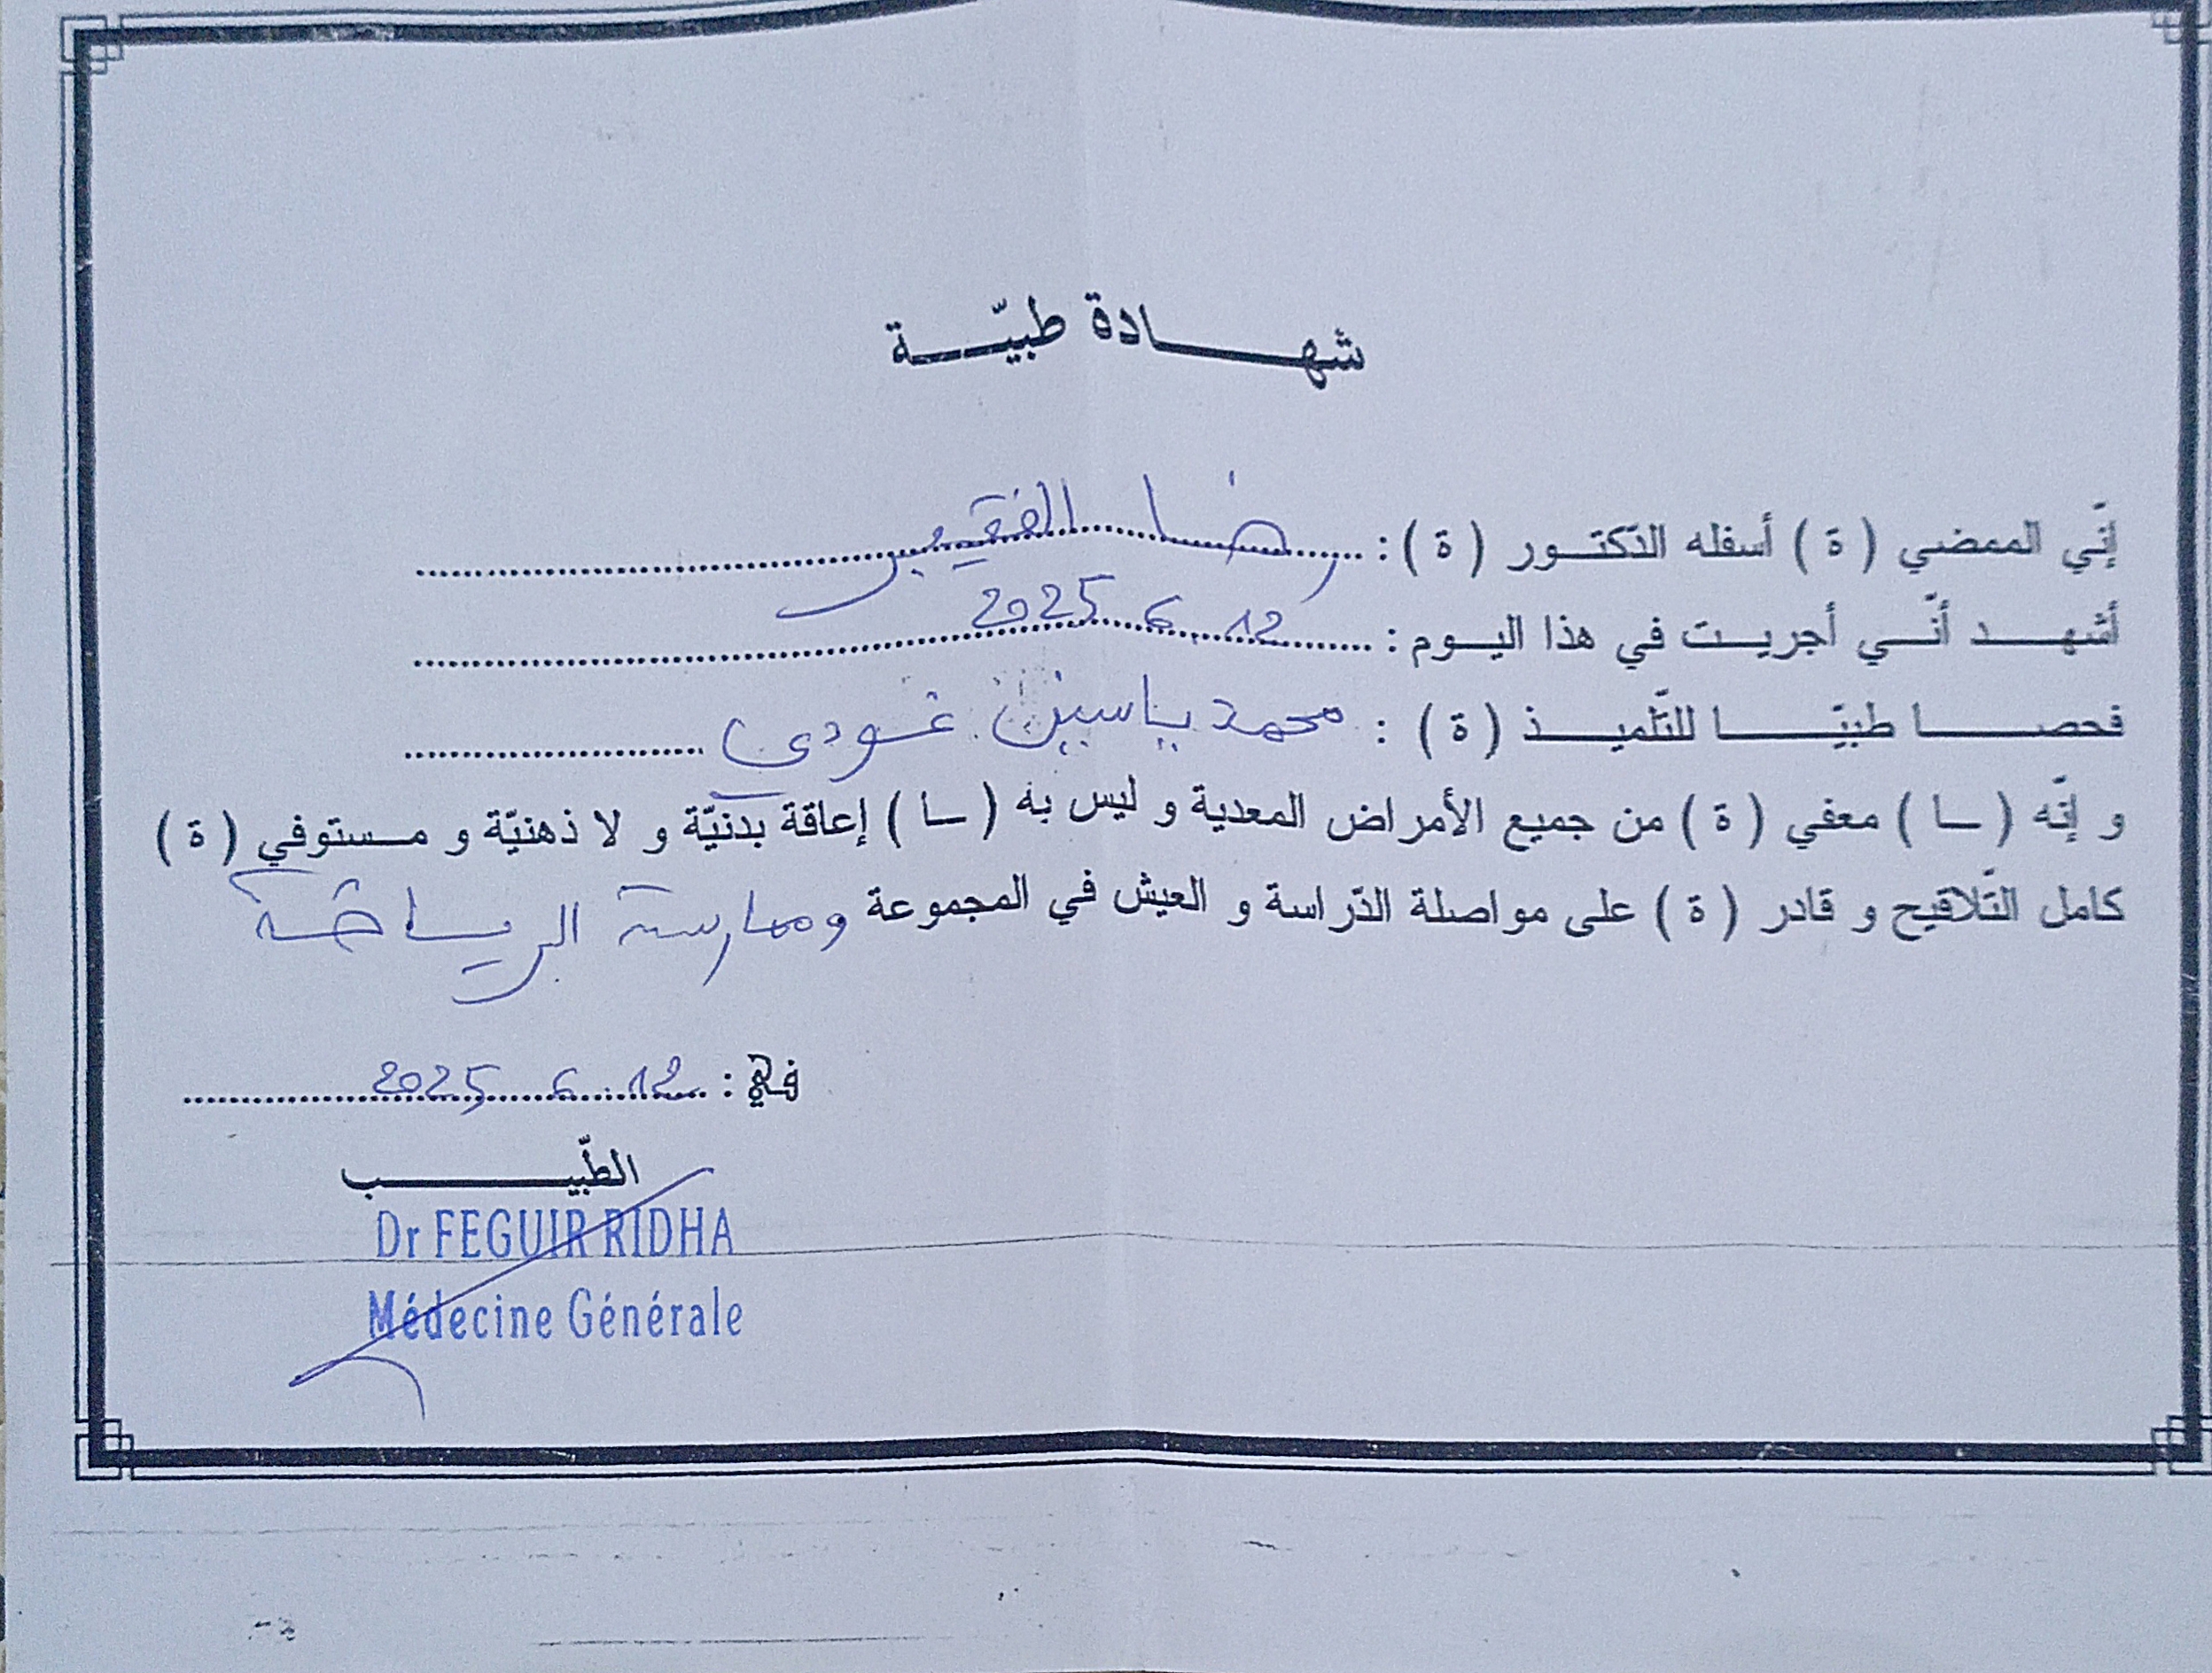 شهادة طبيّة
إنّي الممضي ( ة ) أسفله الدّكتور ( ة ) : رضا الفقير
أشهد أنّي أجريت في هذا اليوم : 12 6 2025
فحصا طبيّا للتّلميذ ( ة ) : محمد ياسين غودي
و إنّه ( ـا ) معفي ( ة ) من جميع الأمراض المعدية و ليس به ( ـا ) إعاقة بدنيّة و لا ذهنيّة و مستوفي ( ة )
كامل التّلاقيح و قادر ( ة ) على مواصلة الدّراسة و العيش في المجموعة وممارسة الرياضة
في : 12 6 2025
الطّبيب
Dr FEGUIR RIDHA
Médecine Générale